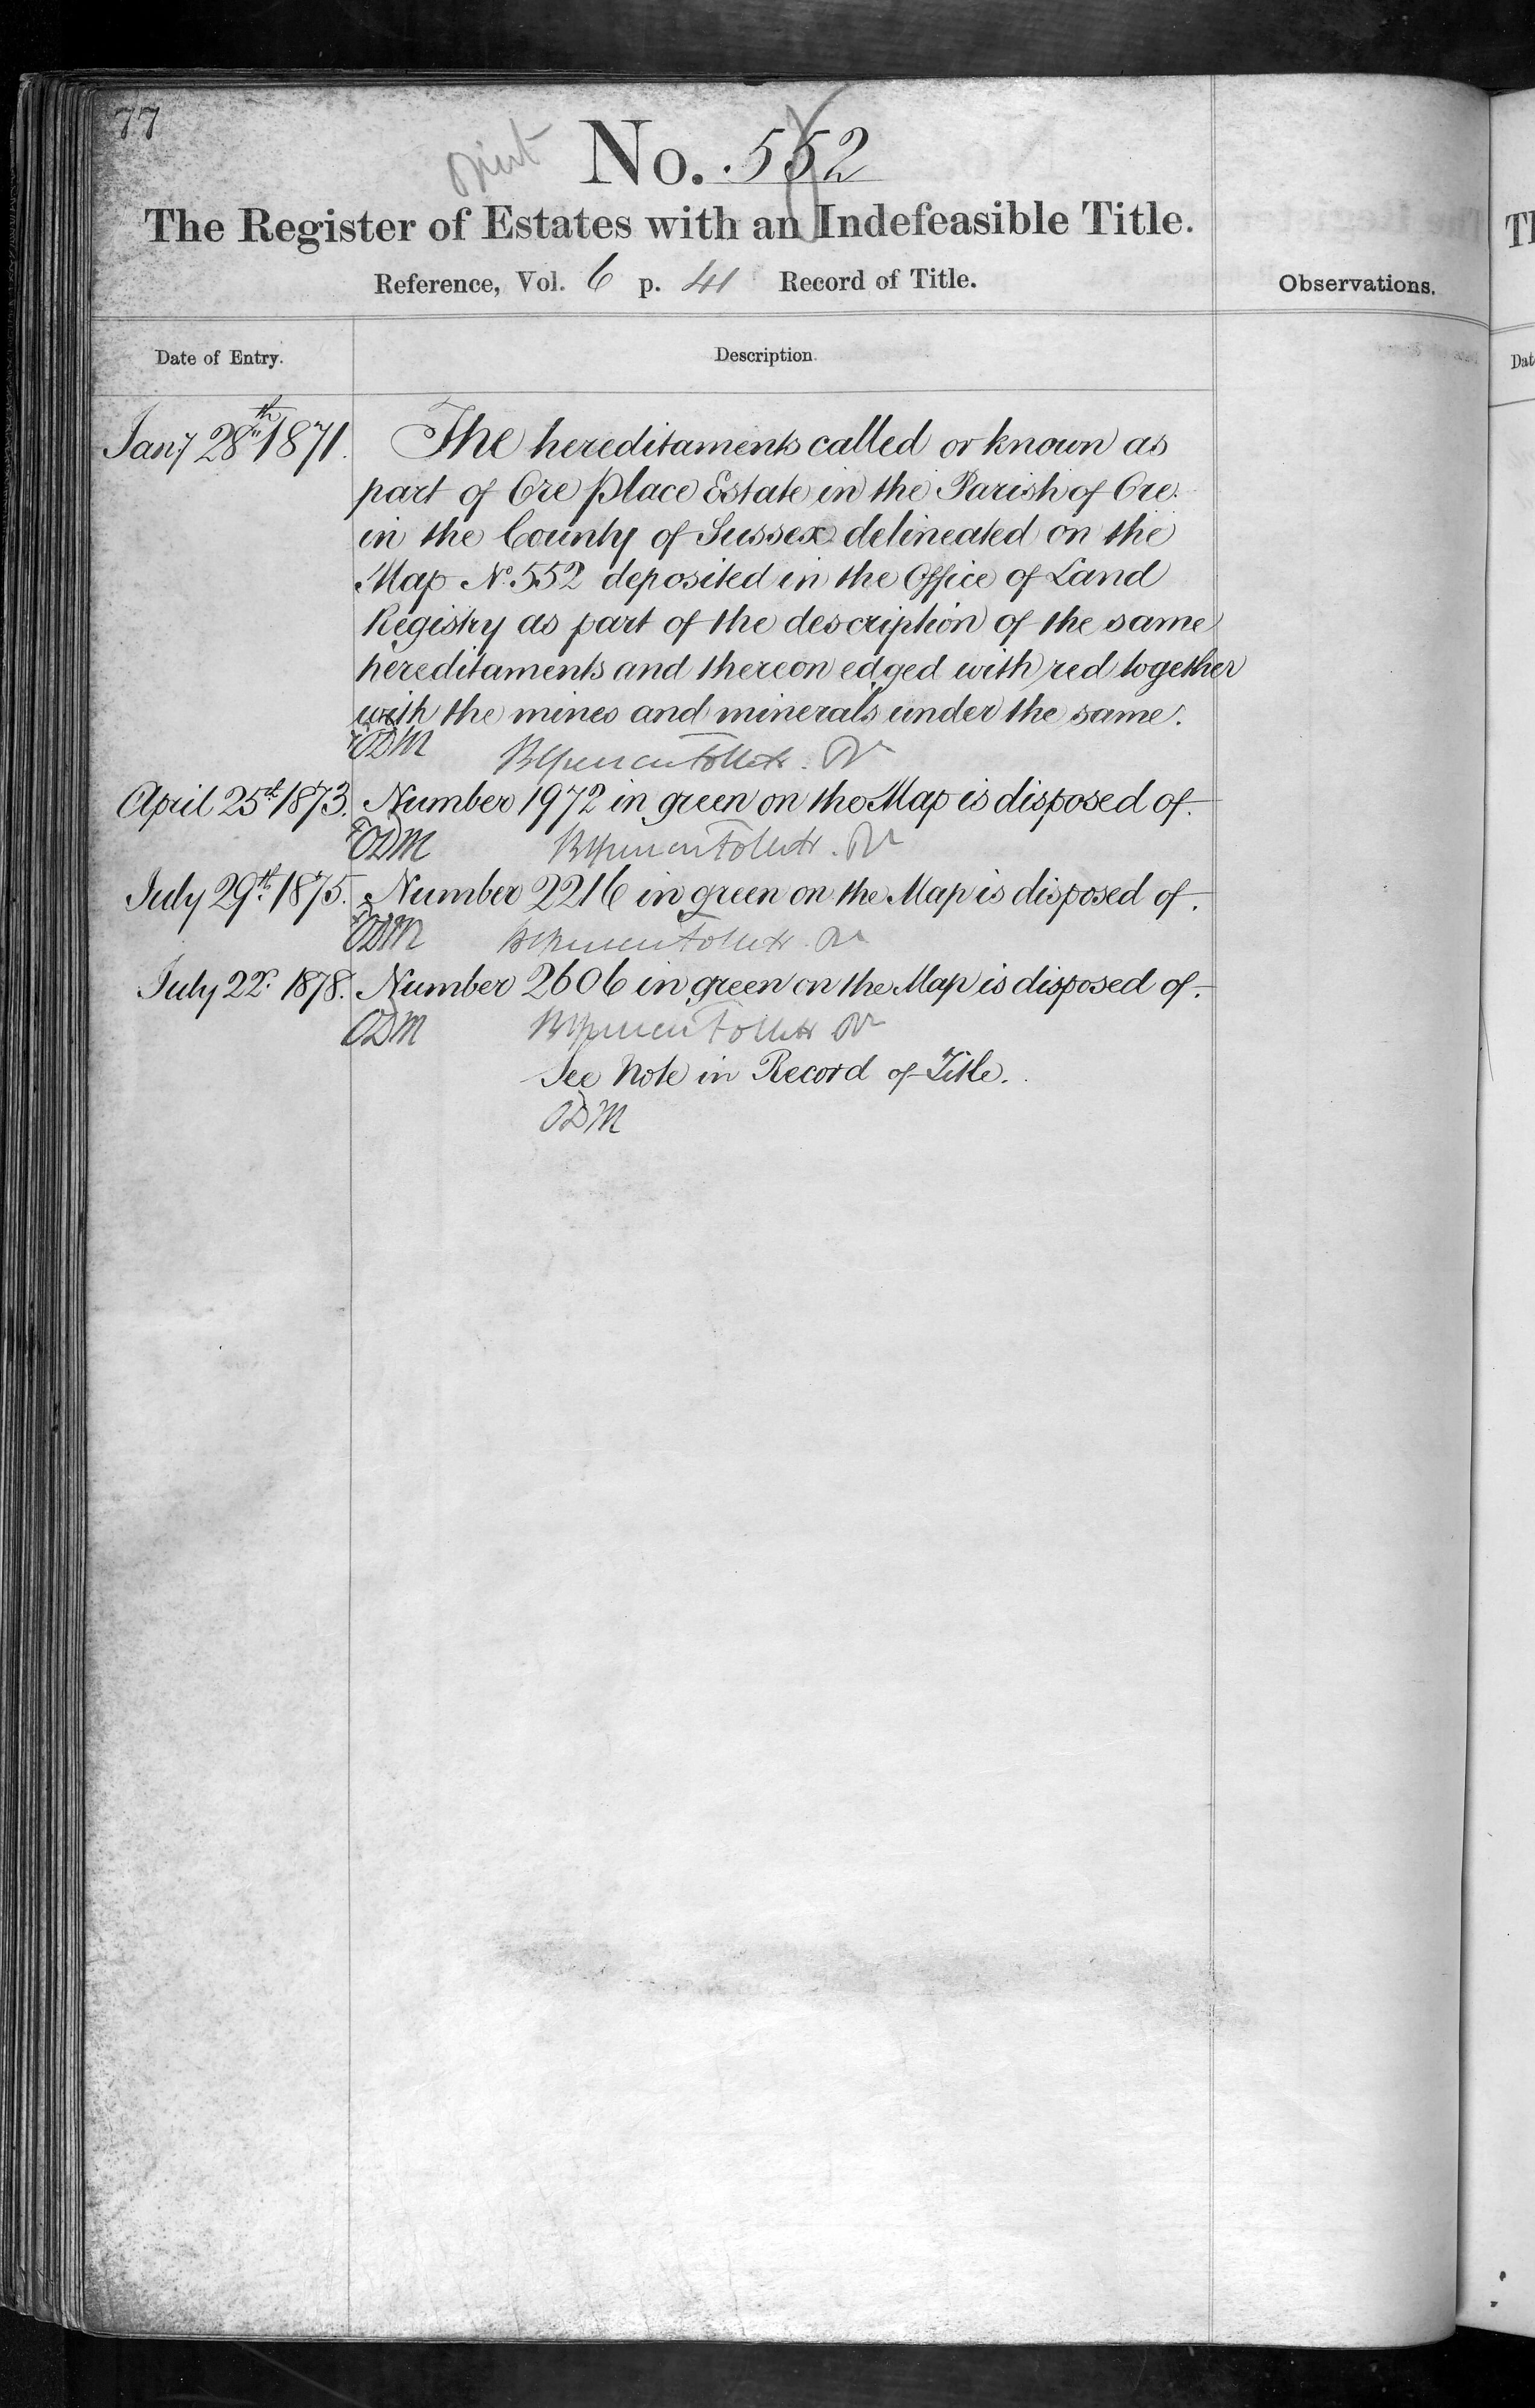 77
No. 552
The Register of Estates with an Indefeasible Title.
Reference, Vol. 6 p. 41 Record of Title.
Observations.
Date of Entry.
Description.
Jany 28th 1871. The hereditaments called or known as
part of Ore Place Estate in the Parish of Ore
in the County of Sussex delineated on the
Map No. 552 deposited in the Office of Land
Registry as part of the description of the same
hereditaments and thereon edged with red together
with the mines and minerals under the same.
ODM Follett
April 25th 1873. Number 1972 in green on the Map is disposed of.
ODM Follett
July 29th 1875. Number 2216 in green on the Map is disposed of.
ODM Follett
July 22d 1878. Number 2606 in green on the Map is disposed of.
ODM Follett
See Note in Record of Title.
ODM